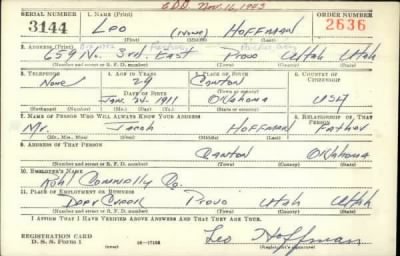 EDD Nov. 16, 1943
SERIAL NUMBER 1. NAME (Print) ORDER NUMBER
3144 LEO (NONE) HOFFMAN 2636
2. ADDRESS (Print)
659 N. 3rd East Provo Utah Utah
(Number and street or R. F. D. number) (Town) (County) (State)
3. TELEPHONE 4. AGE IN YEARS 5. PLACE OF BIRTH 6. COUNTRY OF CITIZENSHIP
None 29 Canton
DATE OF BIRTH
Jan. 24. 1911 Oklahoma USA
(Exchange) (Number) (Mo.) (Day) (Yr.) (State or country)
7. NAME OF PERSON WHO WILL ALWAYS KNOW YOUR ADDRESS 8. RELATIONSHIP OF THAT PERSON
Mr. Jacob Hoffman Father
(Mr., Mrs., Miss) (First) (Middle) (Last)
9. ADDRESS OF THAT PERSON
Canton Oklahoma
(Number and street or R. F. D. number) (Town) (County) (State)
10. EMPLOYER'S NAME
Connolly Co.
11. PLACE OF EMPLOYMENT OR BUSINESS
Deer Creek Provo Utah Utah
(Number and street or R. F. D. number) (Town) (County) (State)
I AFFIRM THAT I HAVE VERIFIED ABOVE ANSWERS AND THAT THEY ARE TRUE.
REGISTRATION CARD
D. S. S. Form 1 Leo Hoffman
(Registrant's signature)